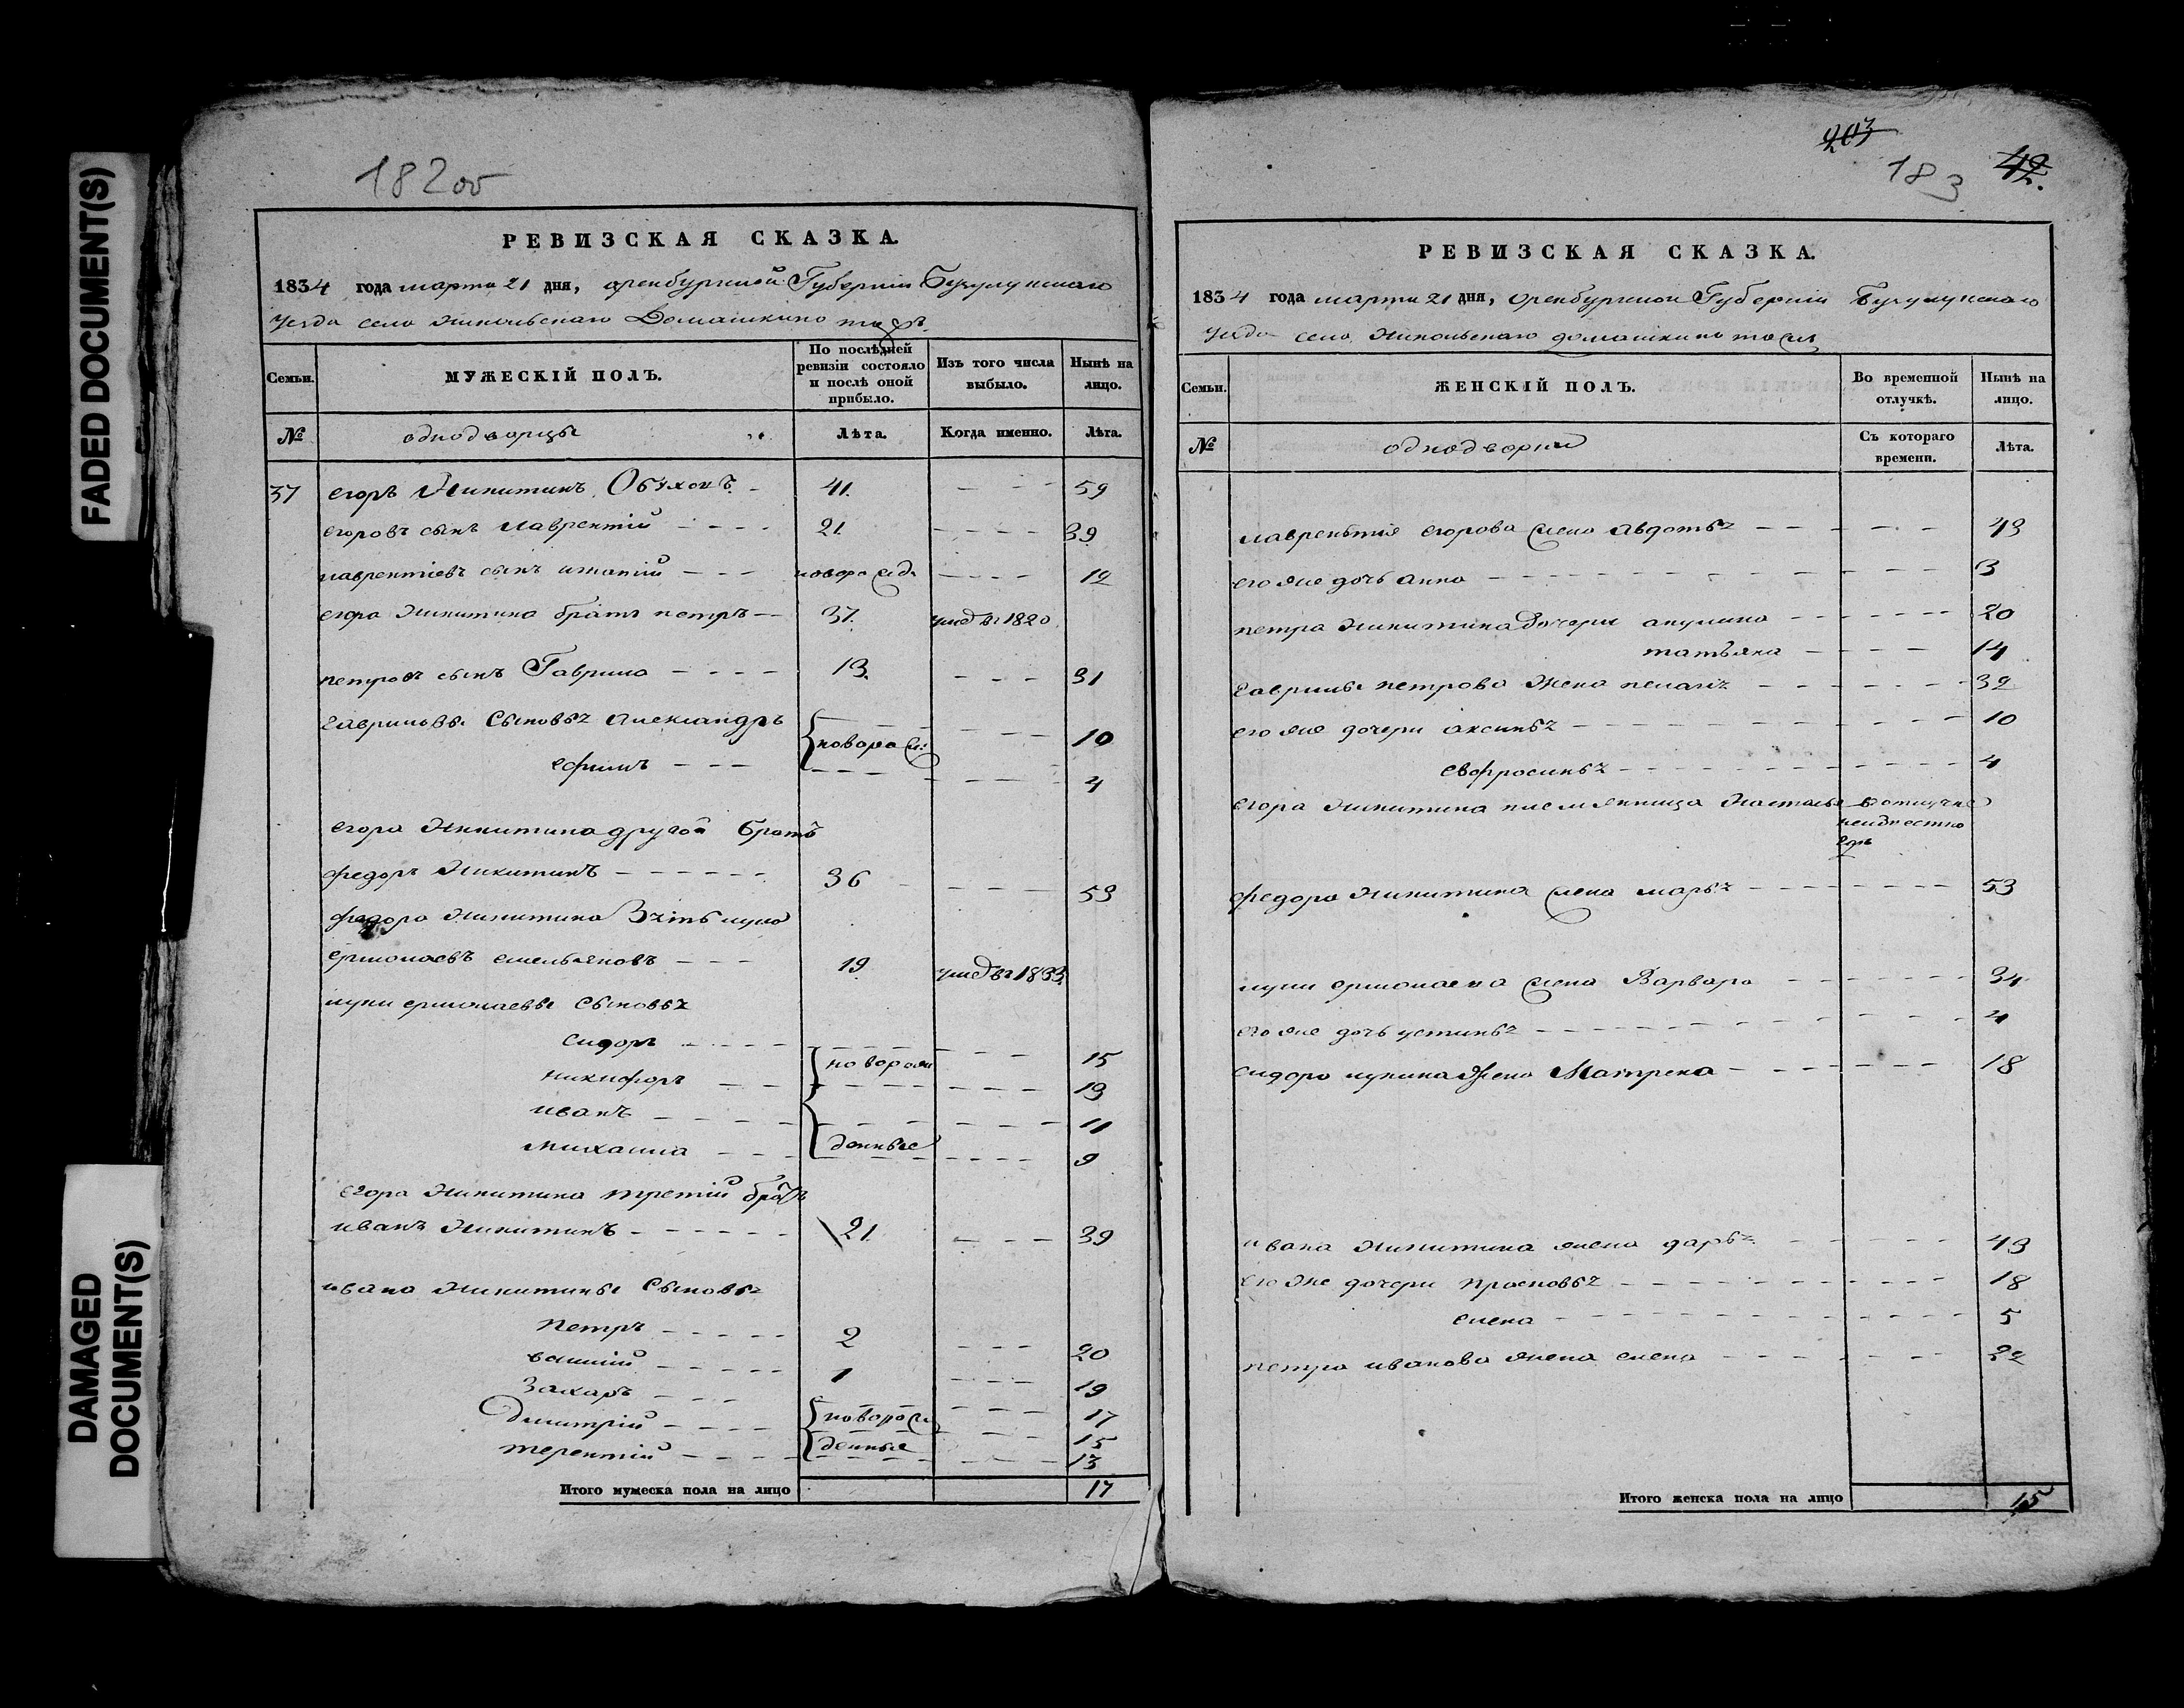 FADED DOCUMENT(S)
DAMAGED
DOCUMENT(S)
182об
РЕВИЗСКАЯ СКАЗКА.
1834 года марта 21 дня, оренбургской Губернии Бузулукскаго
уезда села Никольскаго Домашкино тожъ.
Семьи.
МУЖЕСКІЙ ПОЛЪ.
По послѣдней ревизіи состояло и послѣ оной прибыло.
Изъ того числа выбыло.
Нынѣ на лицо.
№ однодворцы Лѣта. Когда именно. Лѣта.
37 егоръ Никитинъ Обуховъ 41. 59
егоровъ сынъ лаврентий 21. 39
лаврентиевъ сынъ игнатий новорожд 12
егора Никитина братъ петръ 37. умед въ 1820
петровъ сынъ Гаврила 13. 31
гавриловы Сыновья александръ новорож: 10
ефимъ 4
егора Никитина другой братъ
федоръ Никитинъ 36 53
федора Никитина Зять лука
ермолаевъ емельяновъ 19 умед въ 1833
луки ермолаевы Сыновья
сидоръ новорож 15
никифоръ 13
иванъ 11
михаила денные 9
егора Никитина третий братъ
иванъ Никитинъ 21. 39
ивана Никитины Сыновья
петръ 2 20
василий 1 19
Захаръ новорож 17
димитрий 15
терентий денные 13
Итого мужеска пола на лицо 17
203
183
42.
РЕВИЗСКАЯ СКАЗКА.
1834 года марта 21 дня, оренбургской Губернии Бузулукскаго
уезда села Никольскаго домашкино тожъ
Семьи.
ЖЕНСКІЙ ПОЛЪ.
Во временной отлучкѣ.
Нынѣ на лицо.
№ однодворки Съ котораго времени. Лѣта.
лаврентия егорова жена авдотья 43
его же дочь анна 3
петра Никитина дочери акулина 20
татьяна 14
гаврилы петрова жена пелагия 32
его же дочери аксинья 10
евфросинья 4
егора Никитина племянница Настасья в отлучке
неизвестно
где
федора Никитина жена марья 53
луки ермолаева жена Варвара 34
его же дочь устинья 4
сидора лукина жена Матрена 18
ивана Никитина жена дарья 43
его же дочери прасковья 18
елена 5
петра иванова жена елена 22
Итого женска пола на лицо 15